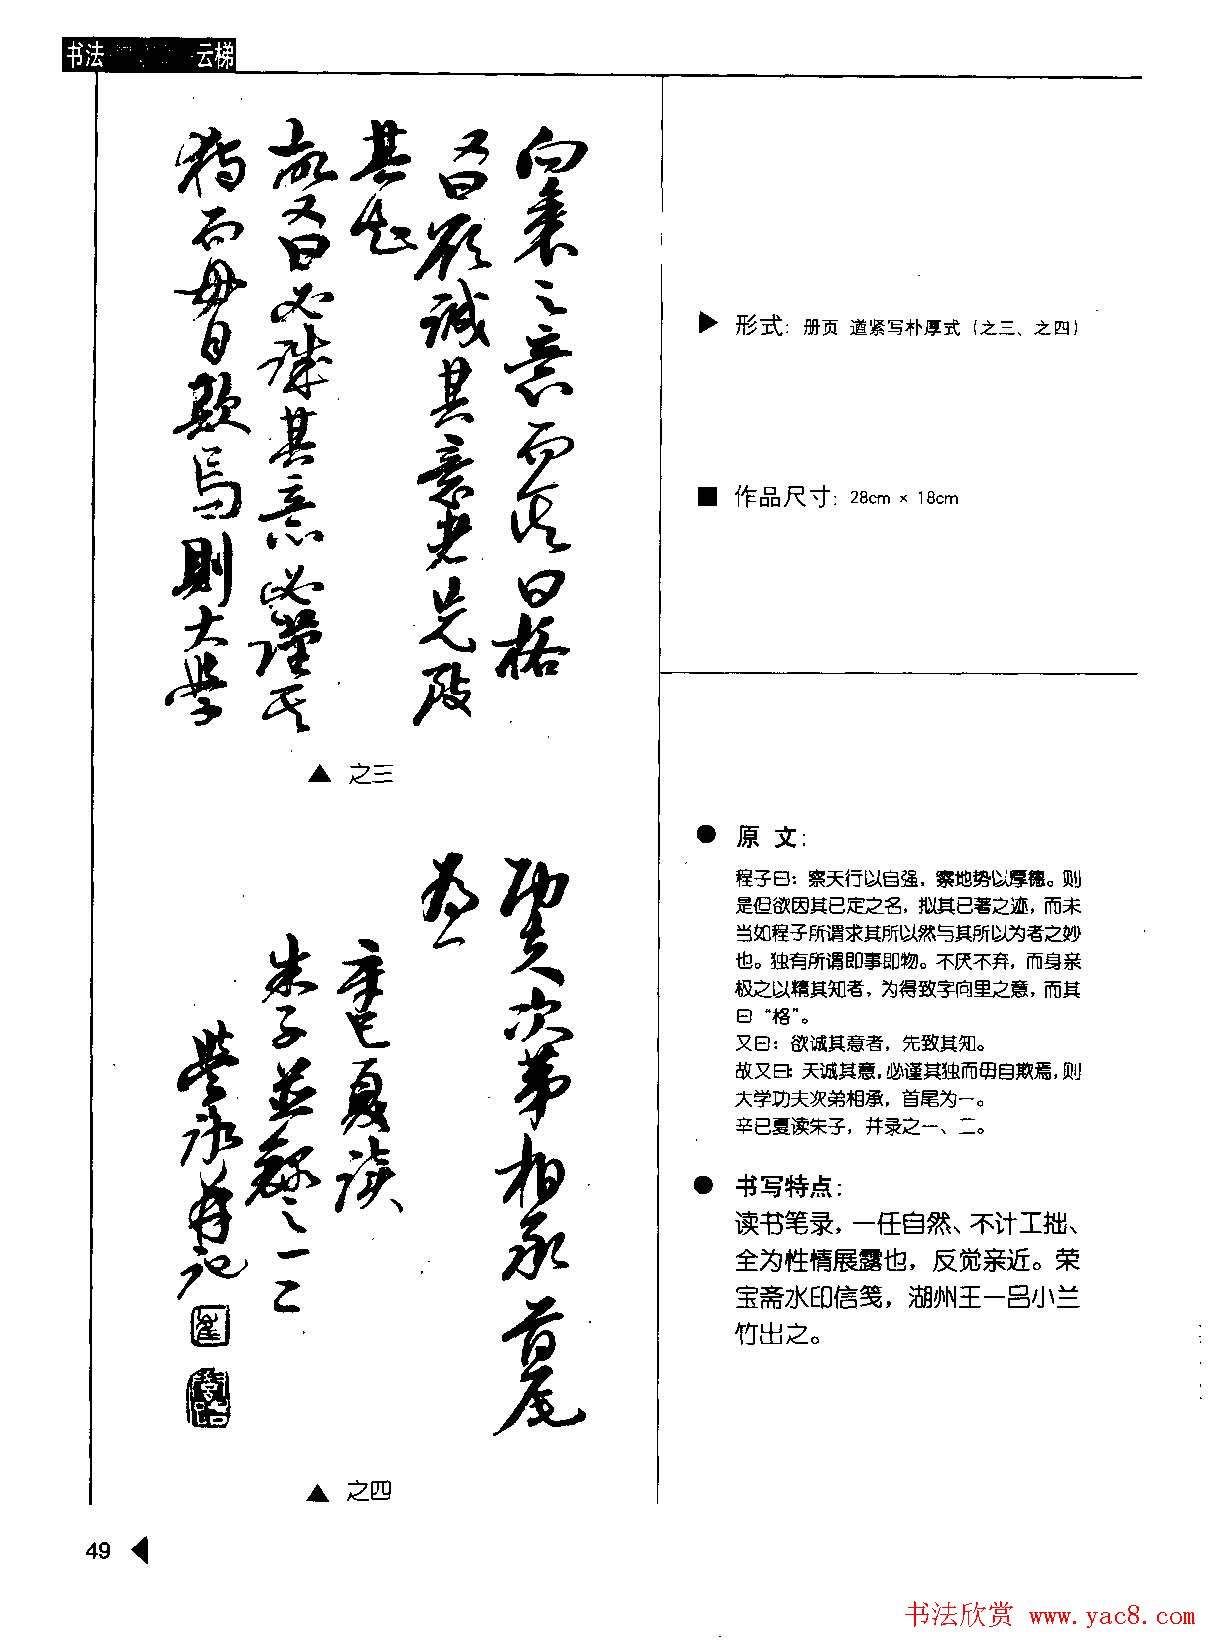 书法 云梯
向裏之意而其曰格
又曰欲誠其意者先致
其知
故又曰必誠其意必謹其
獨而毋自欺焉則大學
▲ 之三
功夫次第相承首尾
為一
辛巳夏讀
朱子並録之一二
▲ 之四
▶ 形式: 册页 遒紧写朴厚式（之三、之四）
■ 作品尺寸: 28cm × 18cm
● 原 文:
程子曰：察天行以自强，察地势以厚德。则
是但欲因其已定之名，拟其已著之迹，而未
当如程子所谓求其所以然与其所以为者之妙
也。独有所谓即事即物。不厌不弃，而身亲
极之以精其知者，为得致字向里之意，而其
曰“格”。
又曰：欲诚其意者，先致其知。
故又曰: 天诚其意，必谨其独而毋自欺焉，则
大学功夫次弟相承，首尾为一。
辛已夏读朱子，并录之一、二。
● 书写特点:
读书笔录，一任自然、不计工拙、
全为性情展露也，反觉亲近。荣
宝斋水印信笺，湖州王一吕小兰
竹出之。
49 ◀
书法欣赏 www.yac8.com